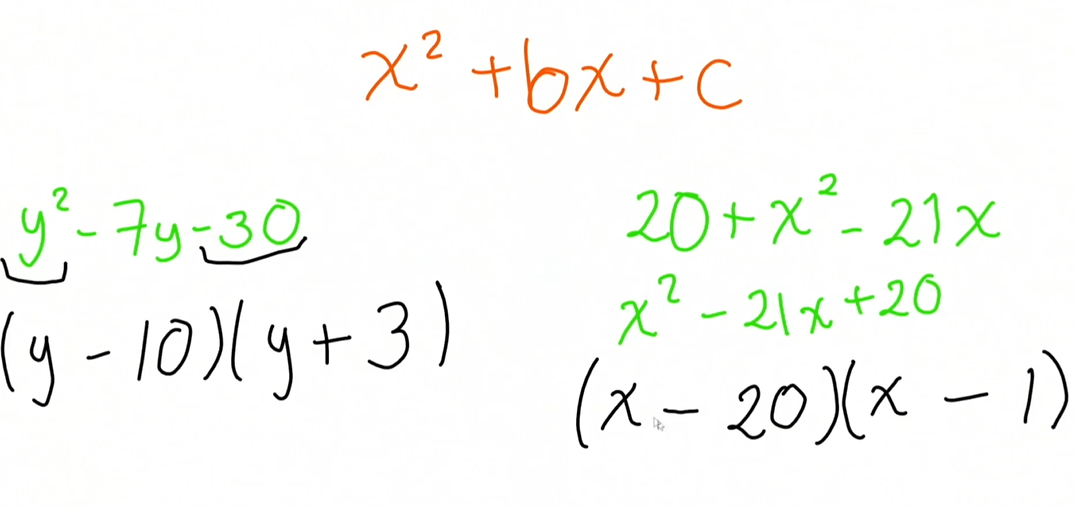 x² + bx + c
y² - 7y - 30
(y - 10)(y + 3)
20 + x² - 21x
x² - 21x + 20
(x - 20)(x - 1)